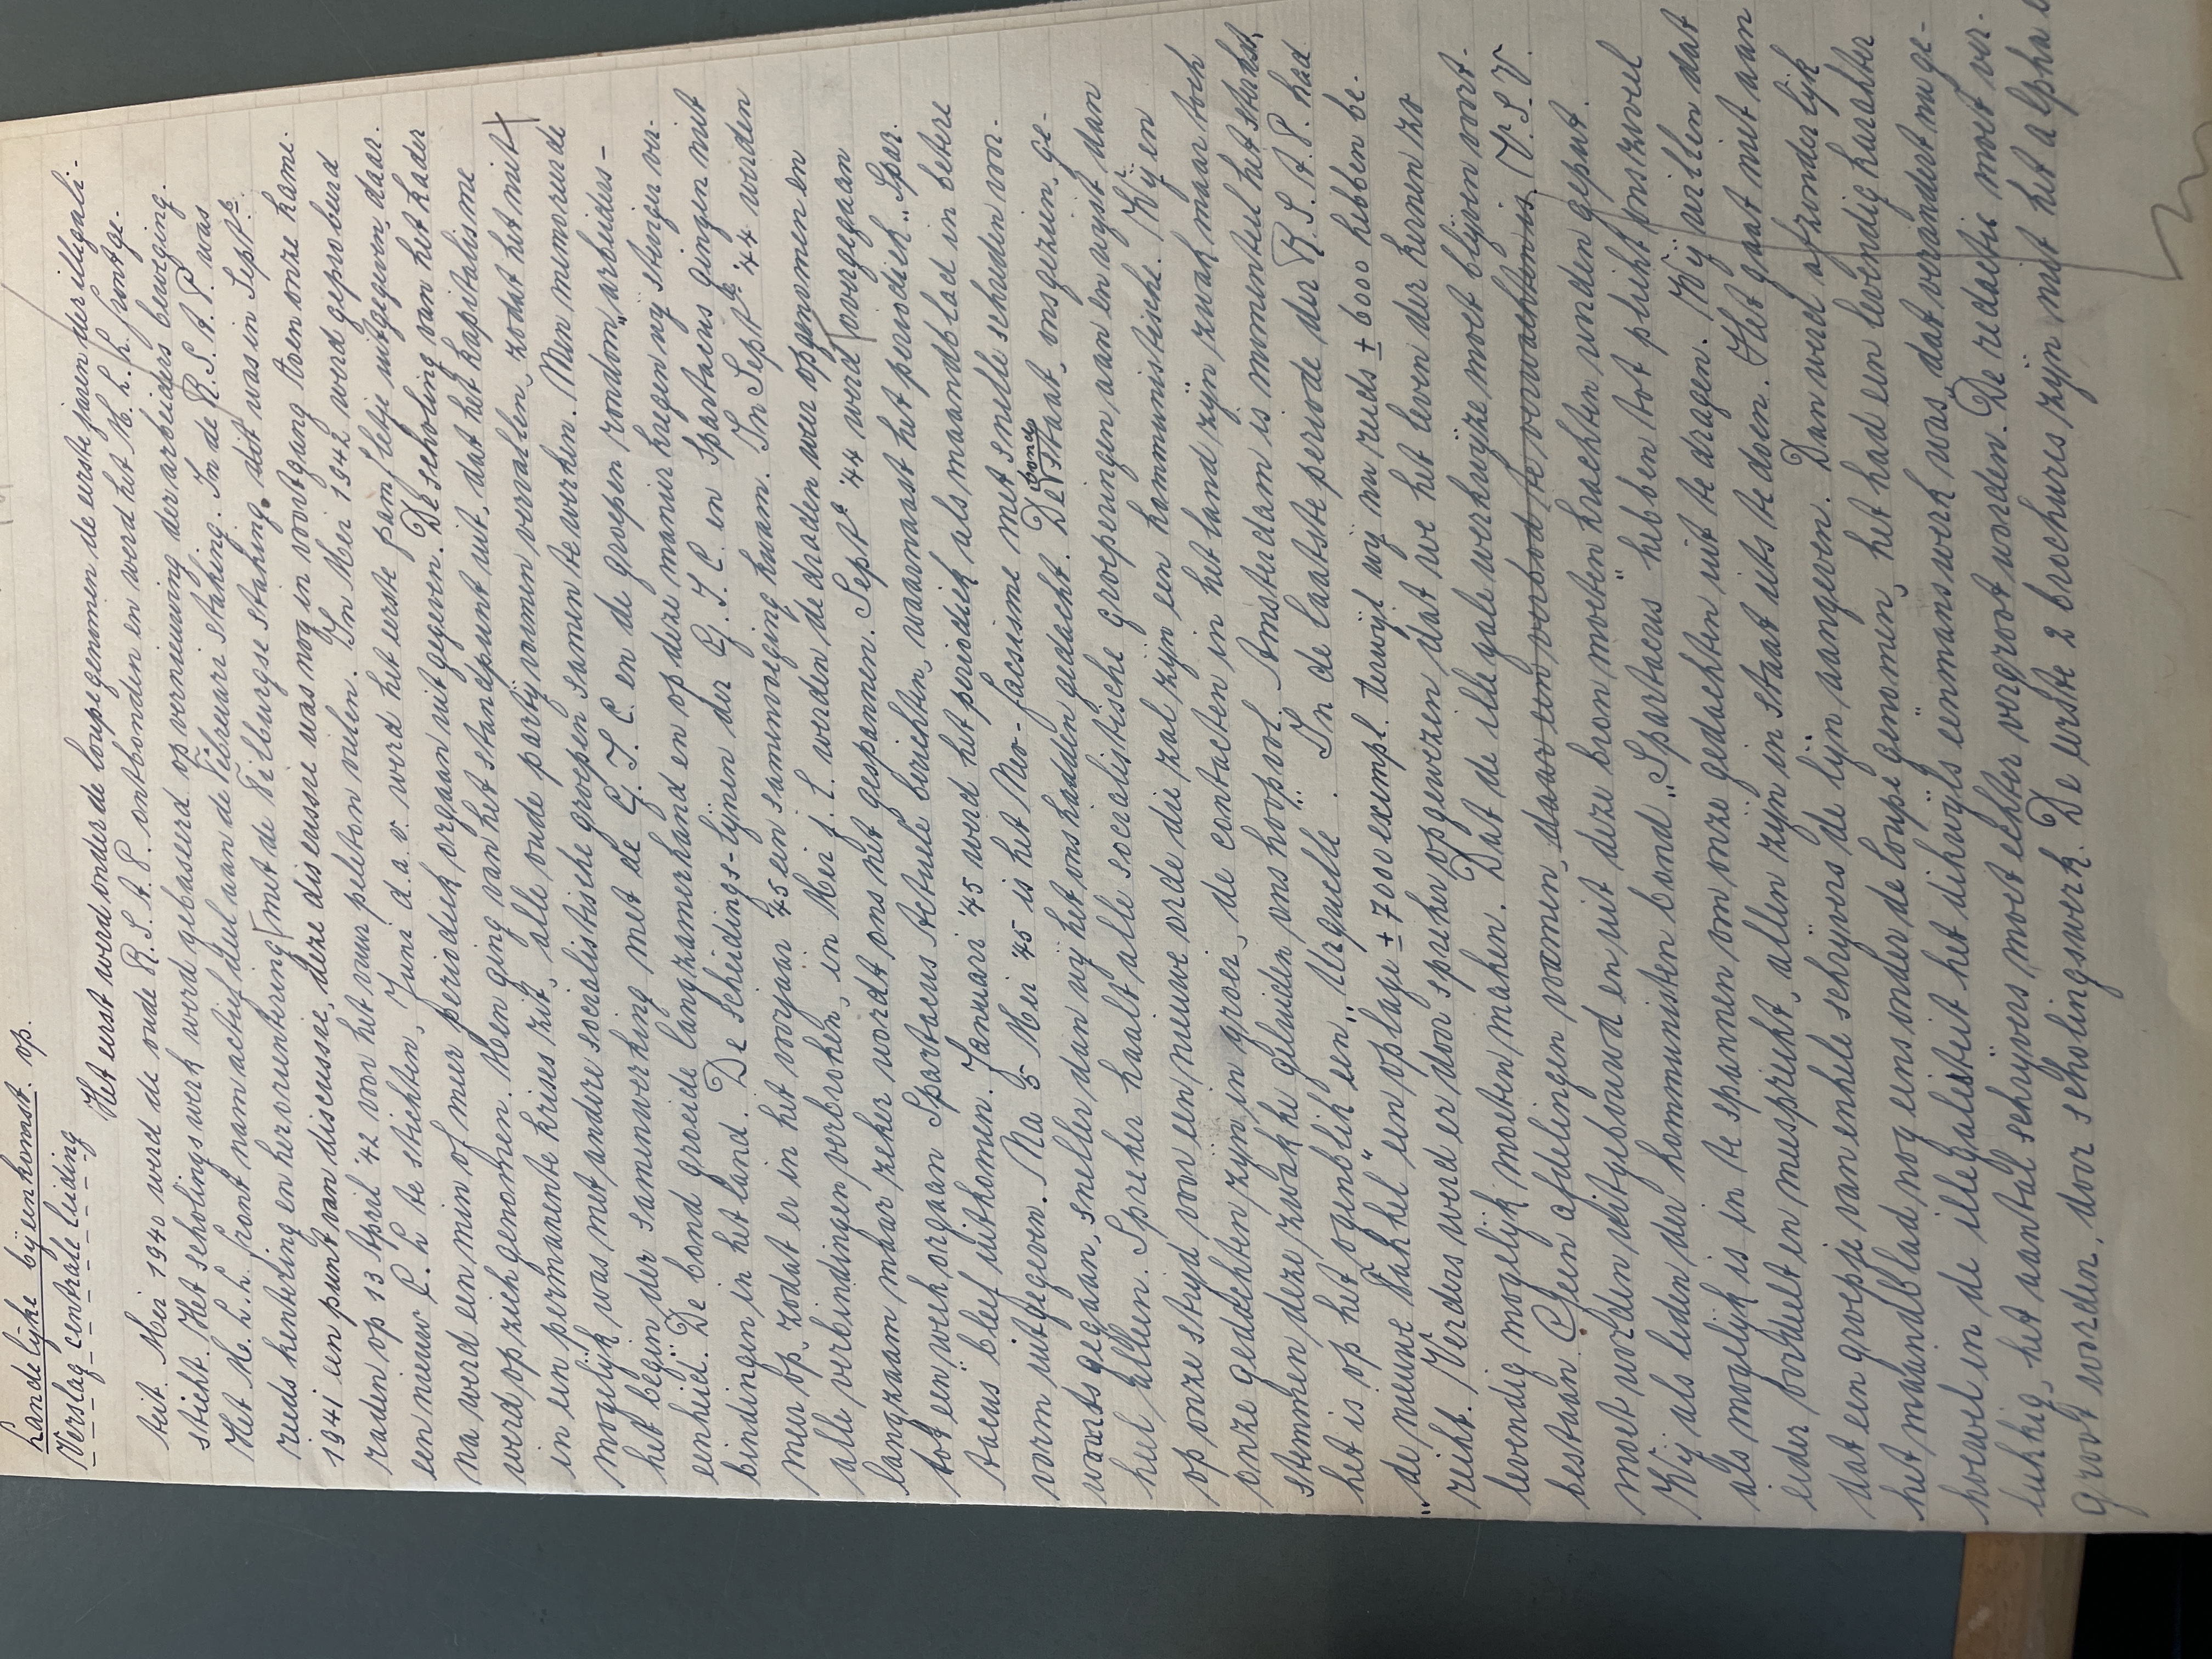 Landelijke bijeenkomst. op.
Verslag centrale leiding
Het eerst werd onder de loupe genomen de eerste jaren der illegali-
teit. Mei 1940 werd de oude R.S.A.P. ontbonden en werd het M.L.L. front ge-
sticht. Het scholingswerk werd gebaseerd op vernieuwing der arbeiders beweging.
Het M.L.L. front nam actief deel aan de Februari staking. In de R.S.A.P. was
reeds kentering en herorientering met de Tilburgse staking. dit was in Sept.
1941 een punt van discussie, deze discussie was nog in voortgang toen onze kame-
raden op 13 April '42 voor het vuurpeleton vielen. In Mei 1942 werd geprobeerd
een nieuw C.K te stichten, Juni d.a.v. werd het eerste pamfletje uitgegeven, daar-
na werd een min of meer periodiek orgaan uitgegeven. De scholing van het kader
werd op zich genomen. Men ging van het standpunt uit, dat het kapitalisme
in een permanente krises zit, alle oude partijvormen vervallen, zodat het niet
mogelijk was met andere socialistische groepen samen te werken. Men memoreerde
het begin der samenwerking met de G.I.C. en de groepen rondom "arbeiders-
eenheid". De bond groeide langzamerhand en op deze manier kregen wij steviger ver-
bindingen in het land. De scheidings-lijnen der G.I.C. en Spartacus gingen niet
meer op, zodat er in het voorjaar '45 een samenvoeging kwam. In Sept. '44 werden
alle verbindingen verbroken, in Mei j.l. werden de draden weer opgenomen en
langzaam maar zeker wordt ons net gespannen. Sept. '44 werd overgegaan
tot een werkorgaan Spartacus Actuele berichten, waarnaast het periodiek "Spar-
tacus bleef uitkomen. Januari '45 werd het periodiek als maandblad in betere
vorm uitgegeven. Na 5 Mei '45 is het Neo-facsisme met snelle schreden voor-
waarts gegaan, sneller dan wij het ons hadden gedacht. De bond staat, ons gezien, ge-
heel alleen. Spreker haalt alle socialistische groeperingen aan en wyst dan
op onze strijd voor een nieuwe orde die zal zijn een kommunistische. Wij en
onze gedachten zijn in groei, de contacten in het land zijn zwak maar toch
stemmen deze zwakke geluiden ons hoopvol. Amsterdam is momenteel het sterkst,
het is op het ogenblik een "Urquelle". In de laatste periode der R.S.A.P. had
"de nieuwe Fakkel" een oplage ± 7000 exempl. terwijl wij nu reeds ± 6000 hebben be-
reikt. Verders werd er door spreker opgewezen dat we het leven der kernen zo
levendig mogelijk moeten maken. Dat de illegale werkwijze moet blijven voort-
bestaan. Geen afdelingen vormen, daar een verbod te verwachten is. V.S.V.
moet worden uitgebouwd en uit deze bron moeten krachten worden geput.
Wij als leden der kommunistenbond "Spartacus" hebben tot plicht ons zoveel
als mogelijk is in te spannen om onze gedachten uit te dragen. Wij willen dat
ieder oordeelt en meespreekt, allen zijn in staat iets te doen. Het gaat niet aan
dat een groepje van enkele schrijvers de lijn aangeven. Dan werd afzonderlijk
het maandblad nog eens onder de loupe genomen, het had een levendig karakter
hoewel in de illegaliteit het dikwijls eenmanswerk was, dat verandert nu ge-
lukkig, het aantal schrijvers moet echter vergroot worden. De redactie moet ver-
groot worden, door scholingswerk. De eerste 2 brochures zijn niet het alpha